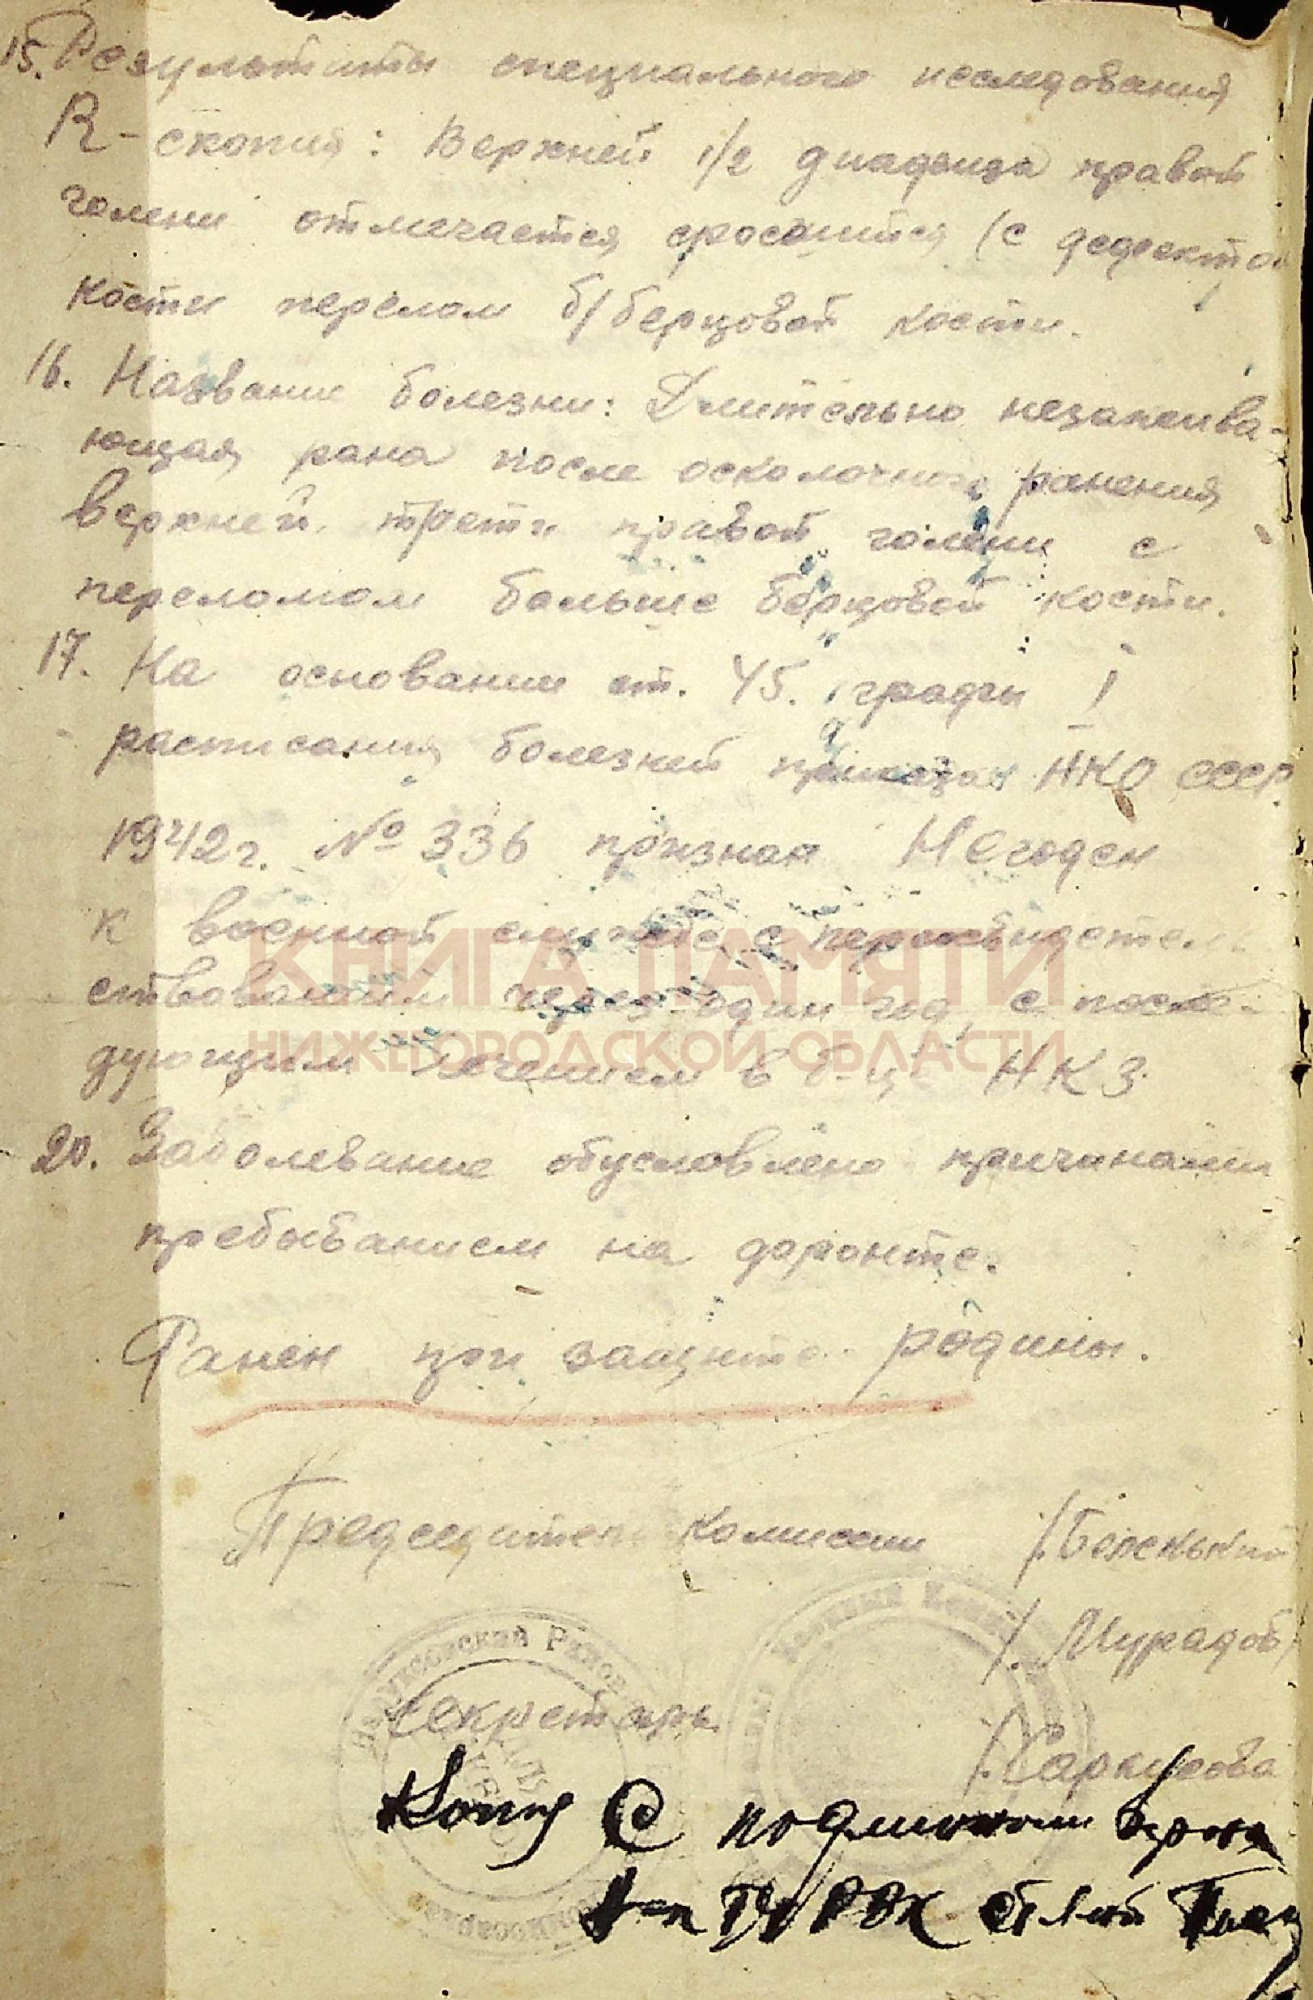 15. Результаты специального исследования
R-скопия: Верхней 1/2 диафиза правой
голени отмечается сросшийся (с дефектом
кости перелом б/берцовой кости.
16. Название болезни: Длительно незажива-
ющая рана после осколочного ранения
верхней трети правой голени с
переломом больше берцовой кости.
17. На основании ст. 45. графы I
расписания болезней приказа НКО СССР
1942 г. № 336 признан Негоден
к военной службе с переосвидетель-
ствованием через один год, с после-
КНИГА ПАМЯТИ
НИЖЕГОРОДСКОЙ ОБЛАСТИ
дующим лечением в б-це НКЗ.
20. Заболевание обусловлено причинами
пребыванием на фронте.
Ранен при защите родины.
Председатель комиссии
/. Мурадов/
Секретарь
/. Саркисова
Копия С подлинным верна